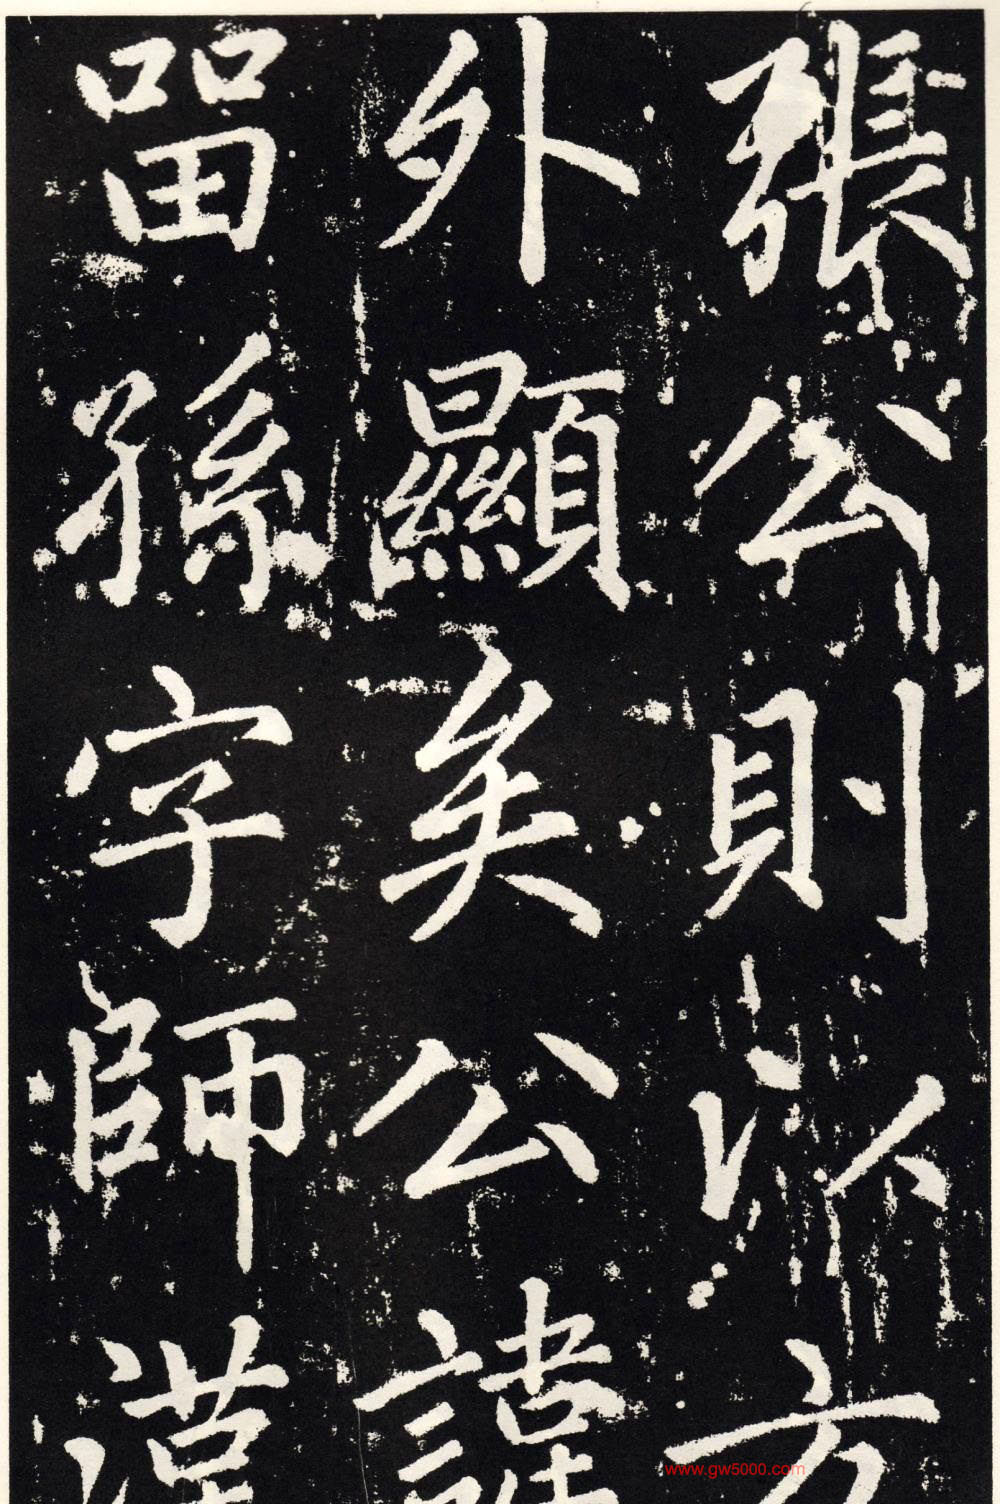 張公則以方
外顯矣公諱
㽞孫字師漢
www.gw5000.com